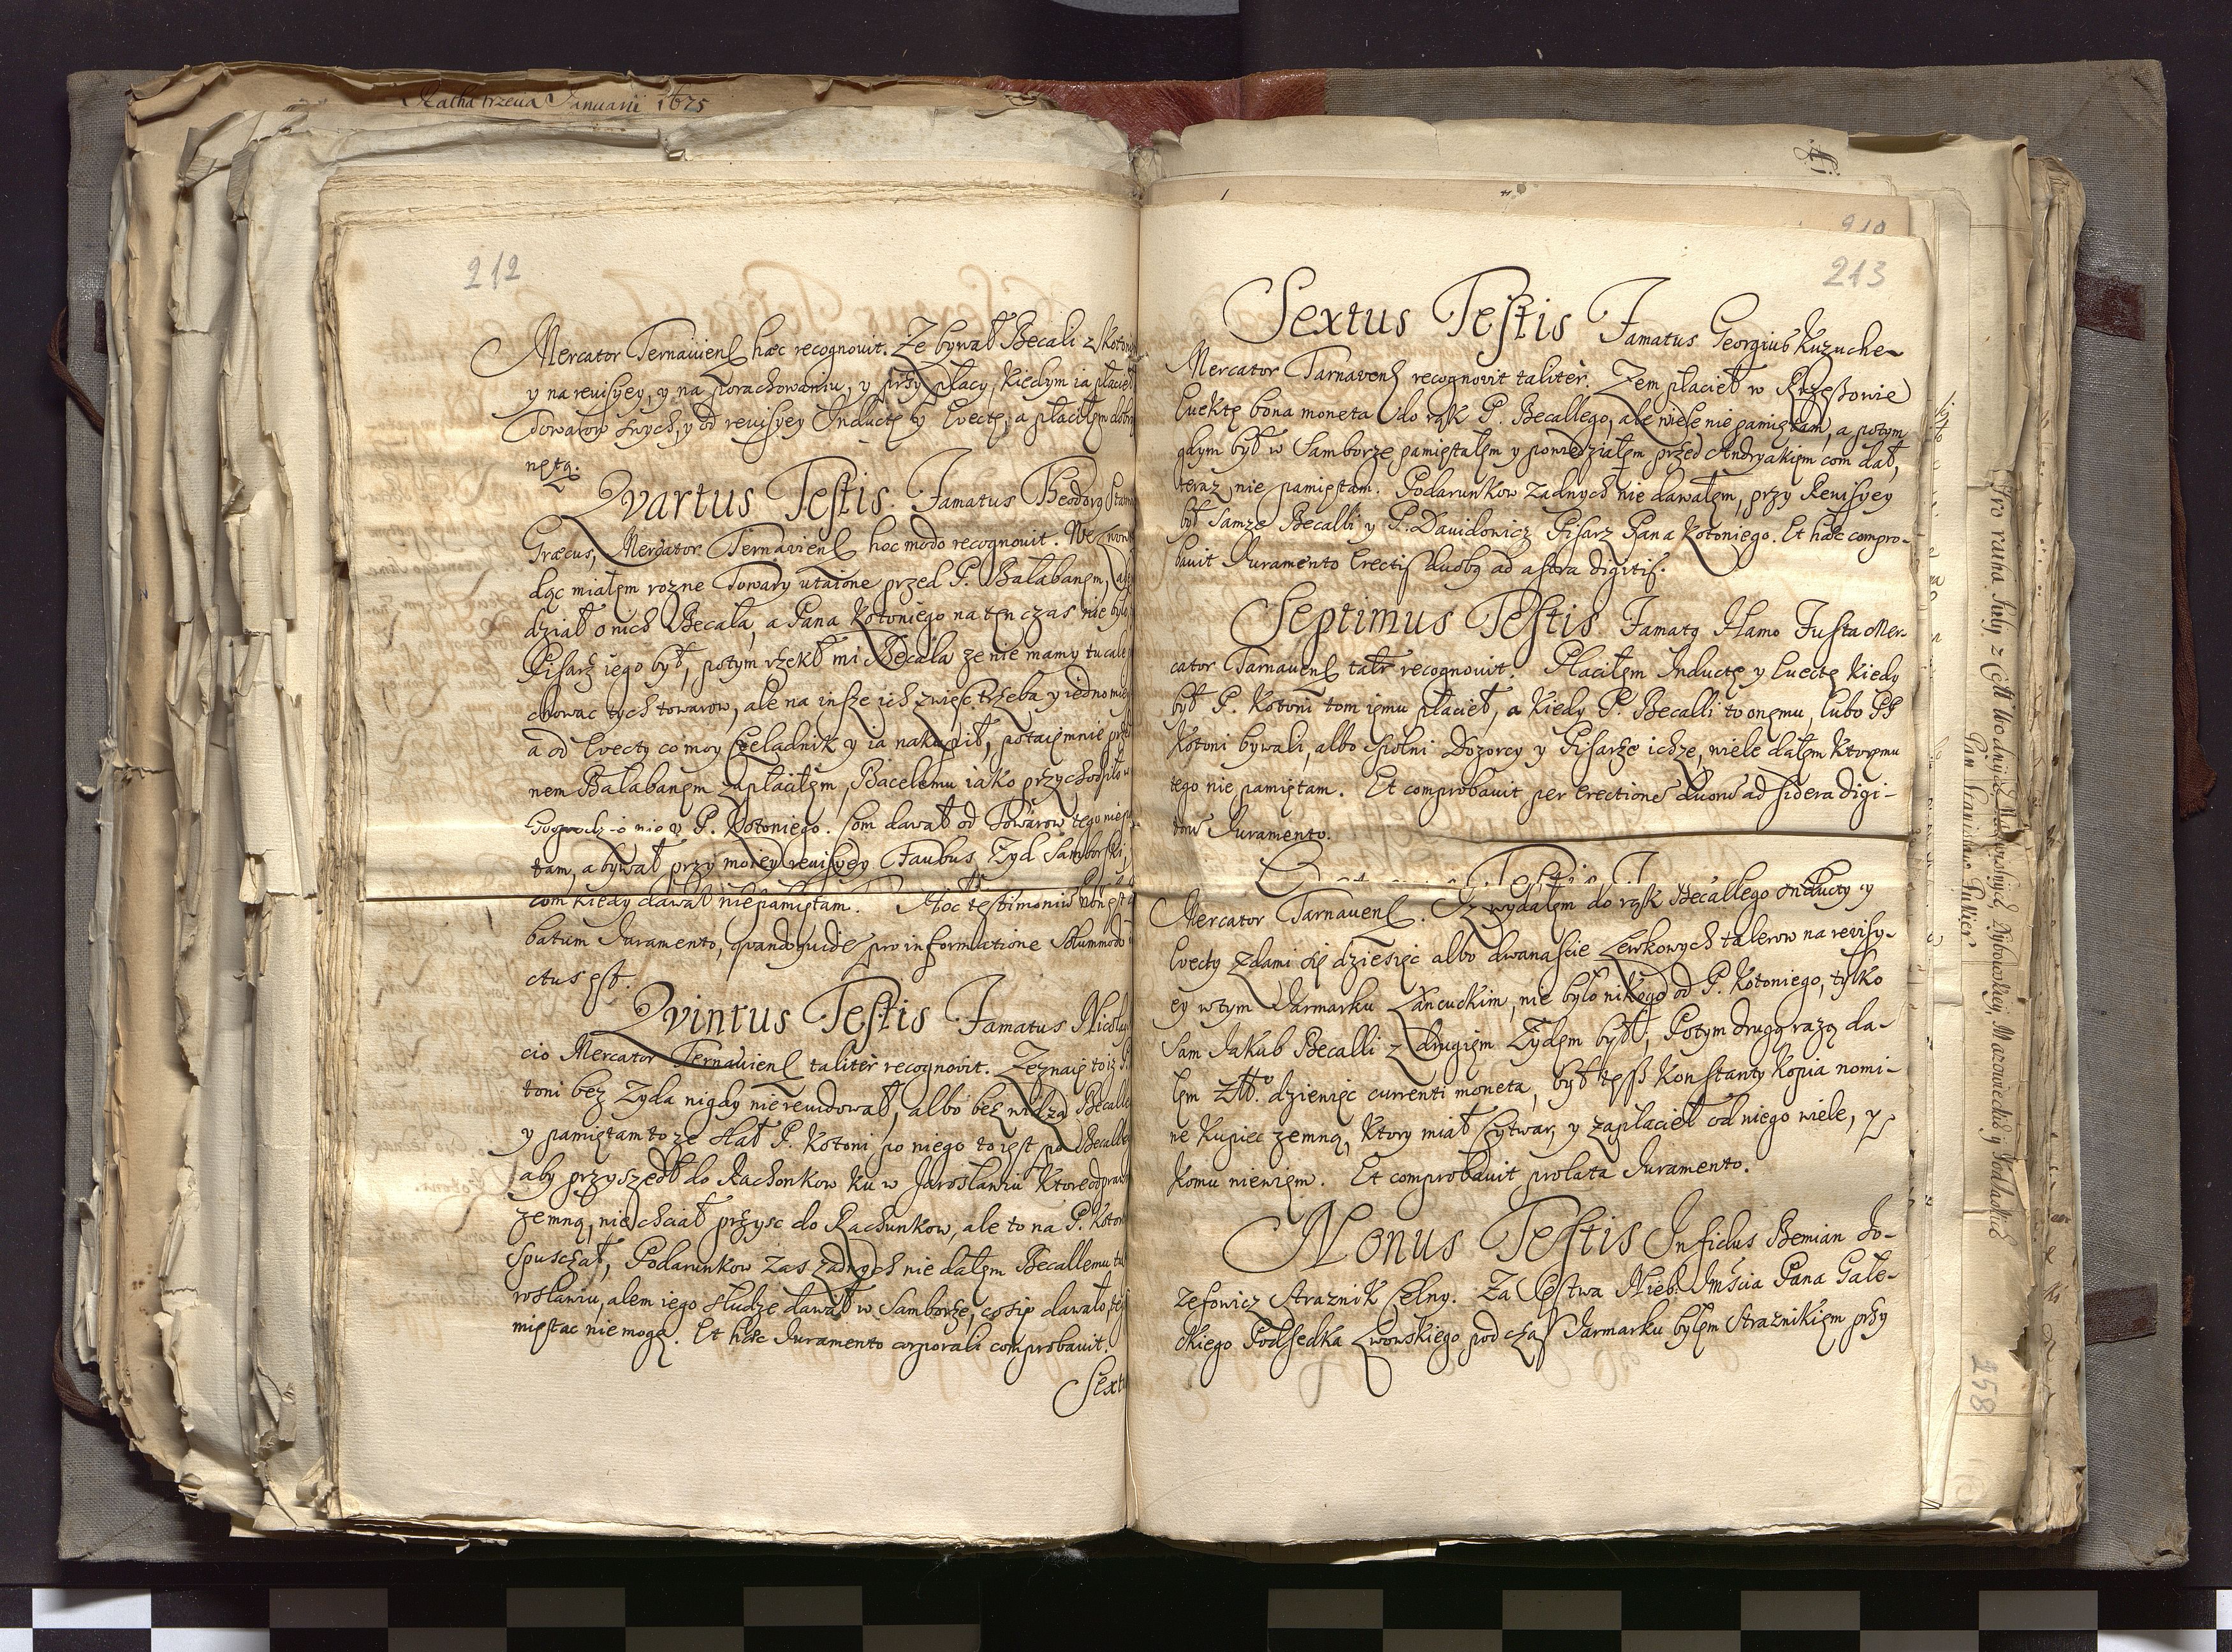 Ratha trzecia Januarii 1675
212
Mercator Ternaviens hæc recognouit. Ze bywał Becali z Kotonim
y na revisyey, y na porachowaniu, y przy płacy, kiedym ia płacieł
Towarow swych, y od revisyey Inductę y Evectę, a płaciłem dobrą
netą.
Qvartus Testis. Famatus Theodorq Stama
Græcus, Mercator Ternaviens hoc modo recognouit.
dąc miałem rozne Towary utaione przed P. Bałabanem,
dział o nich Becala, a Pana Kotoniego na ten czas nie było
Pisarz iego był, potym rzekł mi Becala ze nie mamy tu cale
chowac tych towarow, ale na insze ich zwiesc trzeba y iedno mie
a od Evecty co moy Czeladnik y ia nakupił, potaiemnie prze
nem Bałabanem zapłaciłem, Bacelemu iako przychodziło w
Gospodzie nie v P. Kotoniego. Com dawał od Towarow tego niep
tam, a bywał przy moiey revisyey Faubus Zyd Samborski,
com kiedy dawał nie pamiętam. Hoc testimoniũ non est
batum Juramento, quandoquidẽ pro informatione solummodo
ctus est.
Qvintus Testis Famatus Nicola
cio Mercator Ternaviens taliter recognovit. Zeznaię to iz P.
toni bez Zyda nigdy nie revidował, albo bez widza Becalle
y pamiętam to ze słał P. Kotoni po niego to iest po Becalle
aby przyszedł do Rachonkow ku w Jarosławiu Ktore odpraw
zemną, nie chciał przysc do Rachunkow, ale to na P. Koton
spuszczał, Podarunkow zas zadnych nie dałem Becallemu
rosławiu, alem iego słudze dawał w Samborze, co się dawało, te
miętac nie mogę. Et hæc Juramento corporali comprobauit.
Sextu
213
Sextus Testis Famatus Georgius Kuzuche
Mercator Tarnavens recognovit taliter. Zem płacieł w Rzeszowie
Evektę bona moneta do rąk P. Becallego, ale wiele nie pamiętam, a potym
gdym był w Samborze pamiętałem y powiedziałem przed Andryakiem com dał,
teraz nie pamiętam. Podarunkow zadnych nie dawałem, przy Revisyey
był samze Becalli y P. Davidowicz Pisarz Pana Kotoniego. Et hæc compro-
bauit Juramento Erectis duobq ad astra digitis.
Septimus Testis. Famatq Hamo Justa Mer-
cator Tarnavens talr recognouit. Płaciłem Inductę y Evectę kiedy
był P. Kotoni tom iemu płacieł, a kiedy P. Becalli to onemu, lubo PP
Kotoni bywali, albo spolni Dozorcy y Pisarze ichze, wiele dałem ktoremu
tego nie pamiętam. Et comprobauit per Erectionẽ duorũ ad sidera digi-
torũ Juramento.
Mercator Tarnavens. Iz wydałem do rąk Becallego Inducty y
Evecty zdami się dziesięc albo dwanascie Lewkowych talerow na revisy-
ey w tym Jarmarku Łancuckim, nie było nikogo od P. Kotoniego, tylko
sam Jakub Becalli z drugiem Zydem był, Potym drugą razą da-
łem złł. dziewięc currenti moneta, był tesz Konstanty Kopia nomi-
ne Kupiec zemną, ktory miał Cytwar, y zapłacieł od niego wiele, y
komu niewiem. Et comprobauit prolata Juramento.
Nonus Testis Infidus Bemian Jo-
zefowicz straznik Celny. Za Cestwa Nieb. Jmścia Pana Gałe-
ckiego Podsedka Lwowskiego pod czas Jarmarku byłem straznikiem przy
258